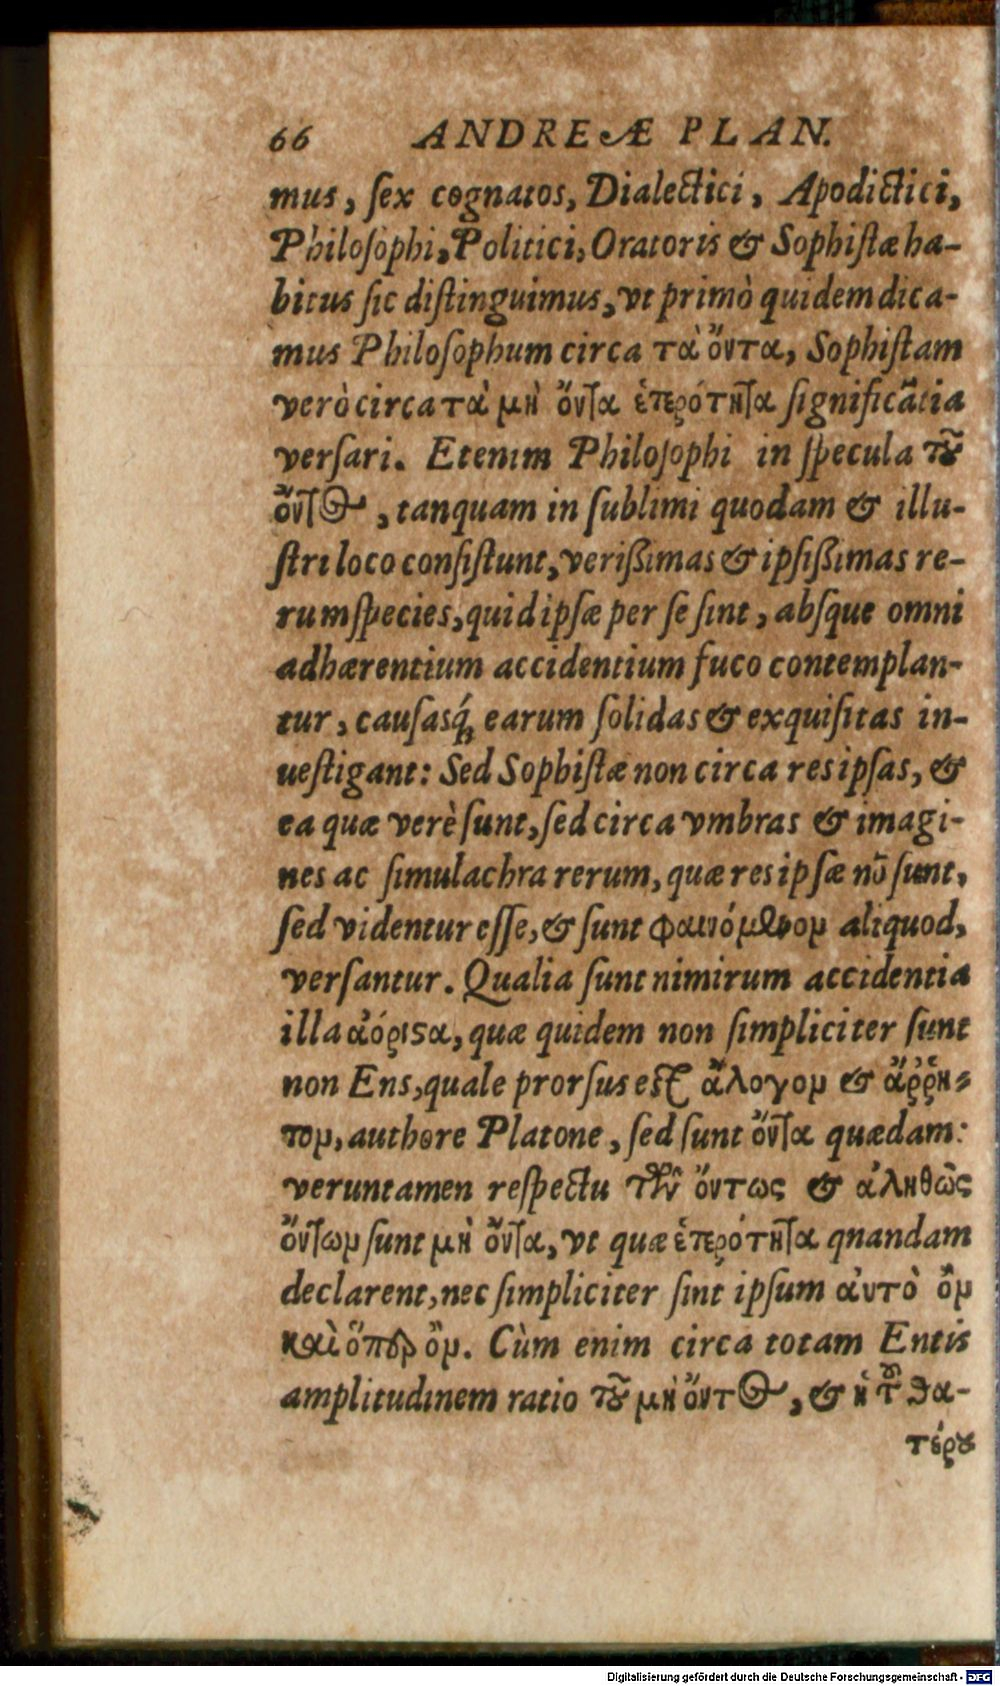 66 ANDREÆ PLAN.
mus, ſex cognatos, Dialectici, Apodictici,
Philoſophi, Politici, Oratoris & Sophiſtæ ha-
bitus ſic diſtinguimus, vt primò quidem dica-
mus Philoſophum circa τὰ ὄντα, Sophiſtam
verò circa τὰ μὴ ὄντα ἑτερότητα ſignificātia
verſari. Etenim Philoſophi in ſpecula τοῦ
ὄντος, tanquam in ſublimi quodam & illu-
ſtri loco conſiſtunt, verißimas & ipſißimas re-
rum ſpecies, quid ipſæ per ſe ſint, abſque omni
adhærentium accidentium fuco contemplan-
tur, cauſasq́ꝫ earum ſolidas & exquiſitas in-
ueſtigant: Sed Sophiſtæ non circa res ipſas, &
ea quæ verè ſunt, ſed circa vmbras & imagi-
nes ac ſimulachra rerum, quæ res ipſæ nō ſunt,
ſed videntur eſſe, & ſunt φαινόμενον aliquod,
verſantur. Qualia ſunt nimirum accidentia
illa ἀόριϛα, quæ quidem non ſimpliciter ſunt
non Ens, quale prorſus eſt ἄλογον & ἄῤῥη-
τον, authore Platone, ſed ſunt ὄντα quædam:
veruntamen reſpectu τῶν ὄντως & ἀληθῶς
ὄντων ſunt μὴ ὄντα, vt quæ ἑτερότητα qnandam
declarent, nec ſimpliciter ſint ipſum ἀυτὸ ὂν
καὶ ὅπερ ὂν. Cùm enim circa totam Entis
amplitudinem ratio τοῦ μὴ ὄντος, & ἡ τοῦ θα-
τέρου
Digitalisierung gefördert durch die Deutsche Forschungsgemeinschaft - DFG